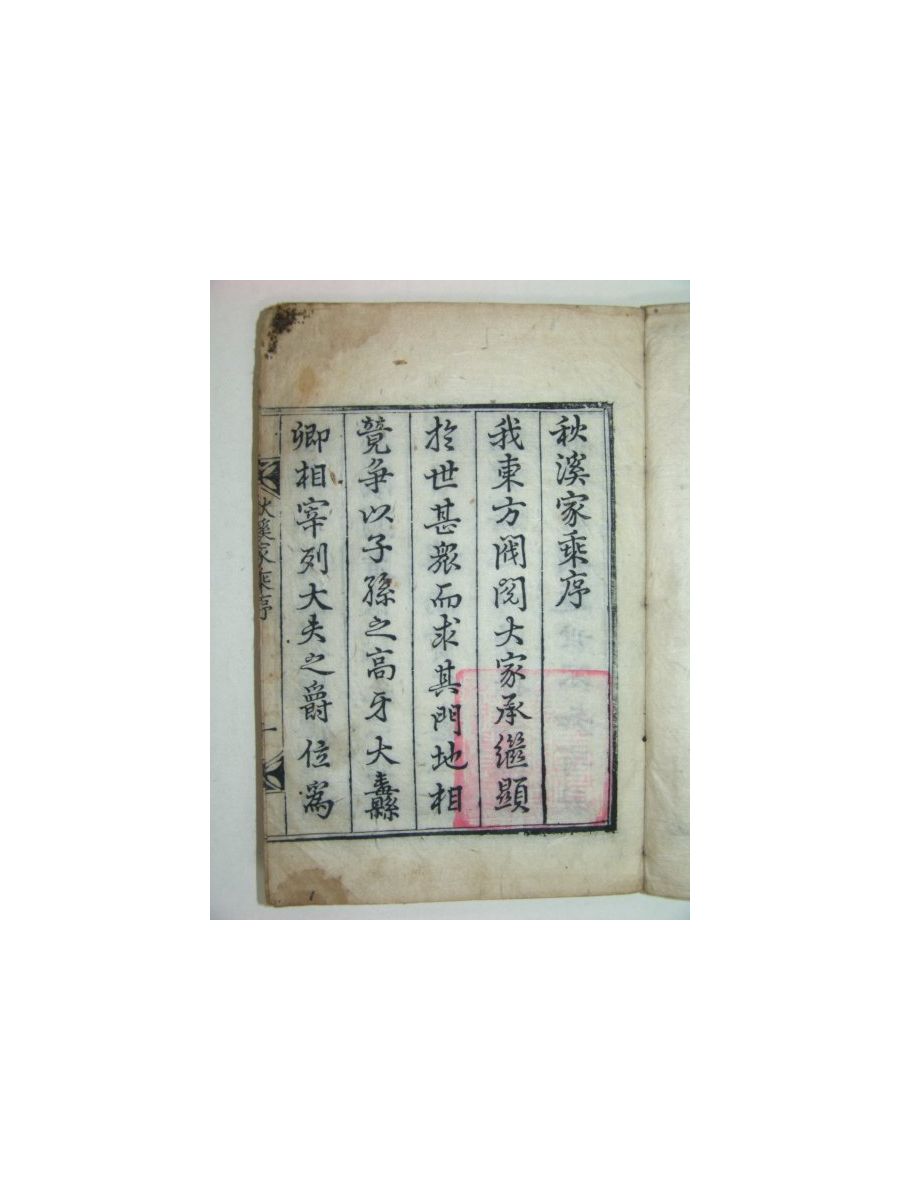 秋溪家乘序
我東方閥閱大家承繼顯
於世甚眾而求其門地相
競爭以子孫之高牙大纛
卿相宰列大夫之爵位爲
秋溪家乘序
一